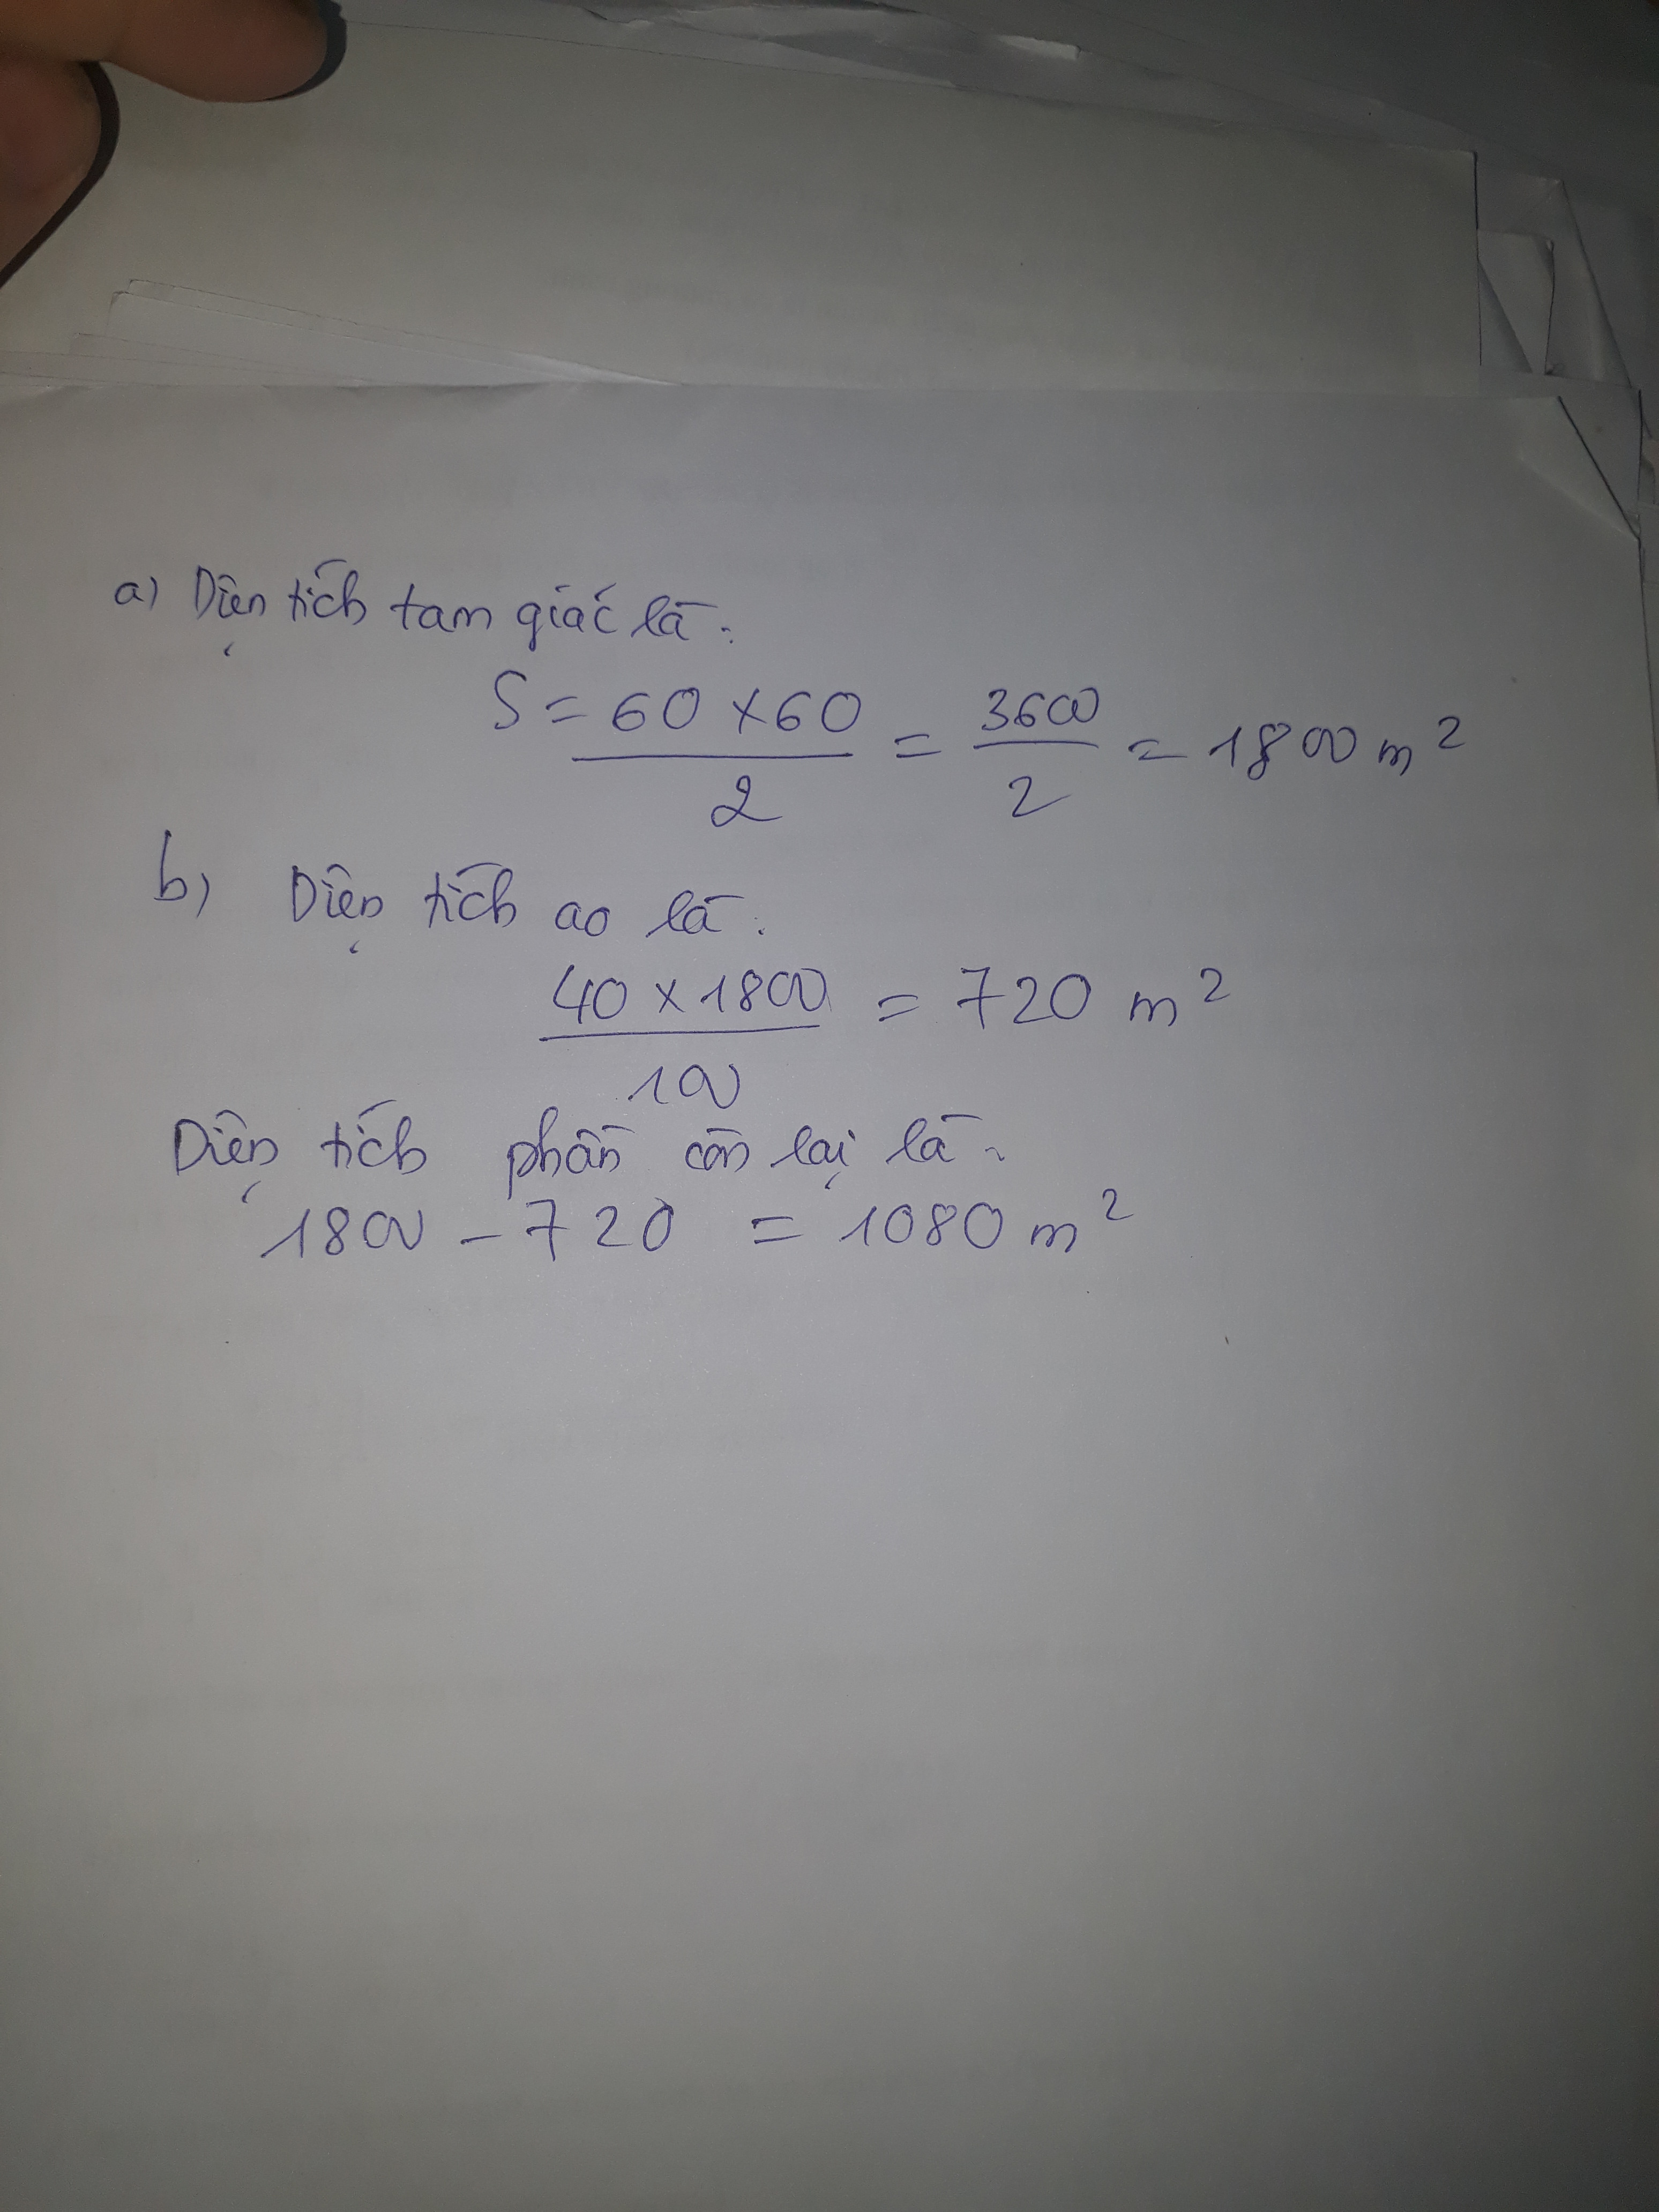 a) Diện tích tam giác là:
S = 60 x 60 / 2 = 3600 / 2 = 1800 m²
b) Diện tích ao là:
40 x 1800 / 100 = 720 m²
Diện tích phần còn lại là:
1800 - 720 = 1080 m²